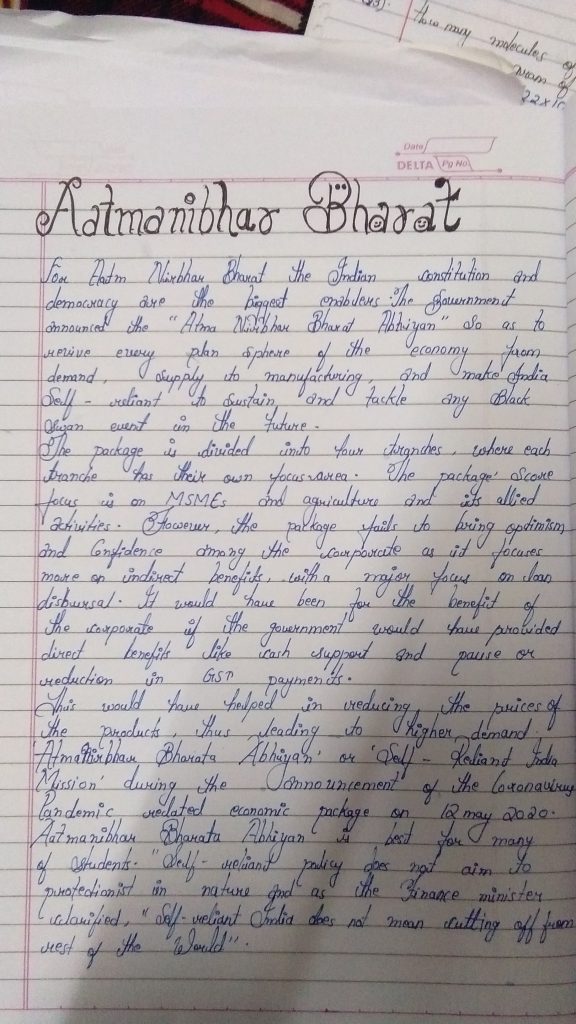 How many molecules of
gram of
22×10
Date
DELTA Pg No
Aatmanibhar Bharat
For Aatm Nirbhar Bharat the Indian constitution and
democracy are the biggest enablers. The Government
announced the "Atma Nirbhar Bharat Abhiyan" so as to
revive every plan sphere of the economy from
demand, supply to manufacturing, and make India
Self - reliant to sustain and tackle any Black
Swan event in the future.
The package is divided into four tranches, where each
tranche has their own focus-area. The package' Score
focus is on MSMEs and agriculture and its allied
activities. However, the package fails to bring optimism
and Confidence among the corporate as it focuses
more on indirect benefits, with a major focus on loan
disbursal. It would have been for the benefit of
the corporate if the government would have provided
direct benefits like cash support and pause or
reduction in GST payments.
This would have helped in reducing the prices of
the products, thus leading to higher demand.
'Atmanirbhar Bharata Abhiyan' or 'Self - Reliand India
Mission' during the announcement of the Coronavirus
Pandemic related economic package on 12 may 2020.
Aatmanibhar Bharata Abhiyan is best for many
of students. "Self - reliant policy does not aim to
protectionist in nature and as the Finance minister
clarified, "Self-reliant India does not mean cutting off from
rest of the World".